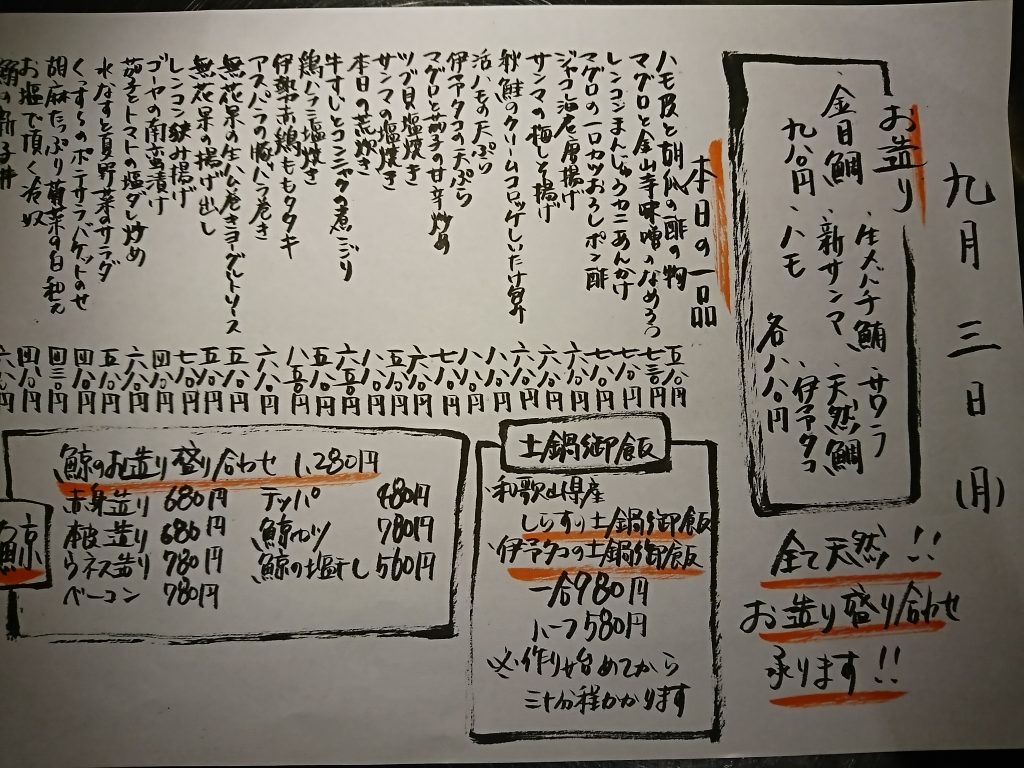 九月三日(月)
お造り
、生メバチ鮪、サワラ
、金目鯛、新サンマ、天然鯛
九八〇円、ハモ、伊予タコ
各八八〇円
全て天然!!
お造り盛り合わせ
承ります!!
本日の一品
ハモ皮と胡瓜の酢の物 五八〇円
マグロと金山寺味噌のなめろう 七三〇円
レンコンまんじゅうカニあんかけ 七八〇円
マグロの一口カツおろしポン酢 七八〇円
ジャコ
サンマの梅しそ揚げ
秋鮭のクリームコロッケしいたけ
活ハモの天ぷら
伊予タコの天ぷら
マグロと茄子の甘辛炒め
ツブ貝塩焼き
サンマの塩焼き
本日の荒炊き
牛すじとコンニャクの煮こごり
鶏ハラミ塩焼き
伊勢赤鶏ももタタキ
アスパラの豚バラ巻き
無花果の生ハム巻きヨーグルトソース
無花果の揚げ出し
レンコン挟み揚げ
ゴーヤの南蛮漬け
茄子とトマトの塩ダレ炒め
水なすと夏野菜のサラダ
くんすらのポテサラバゲットのせ
胡麻たっぷり菊菜の白和え
お塩で頂く冷奴
土鍋御飯
、和歌山県産
しらすの土鍋御飯
、伊予タコの土鍋御飯
一合980円
ハーフ580円
※作り始めてから
三十分程かかります
鯨のお造り盛り合わせ 1,280円
赤身造り 680円
本皮造り 680円
ウネス造り 780円
ベーコン 780円
テッパ 480円
鯨カツ 780円
鯨の塩干し 560円